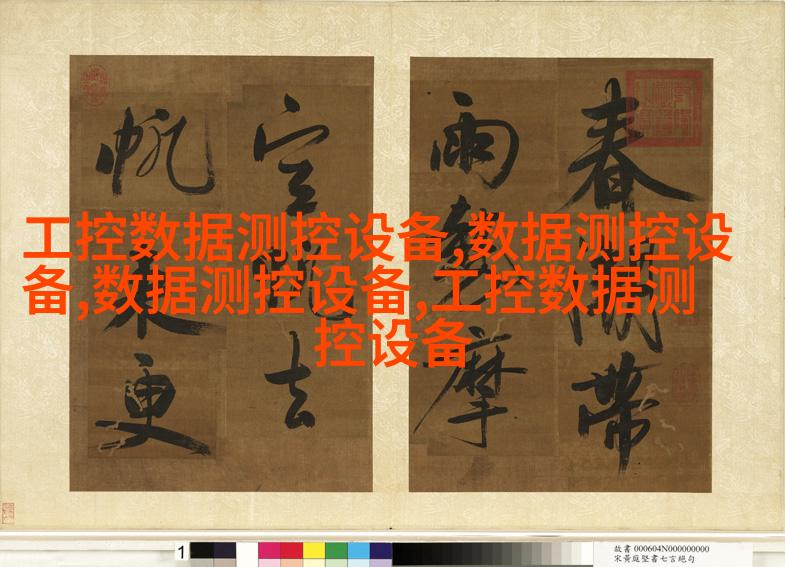 工控数据测控设备,数据测控设
备,数据测控设备,工控数据测
控设备
春帶
雨摩
去
帆更
1
故書 000604N000000000
宋黃庭堅書七言絕句